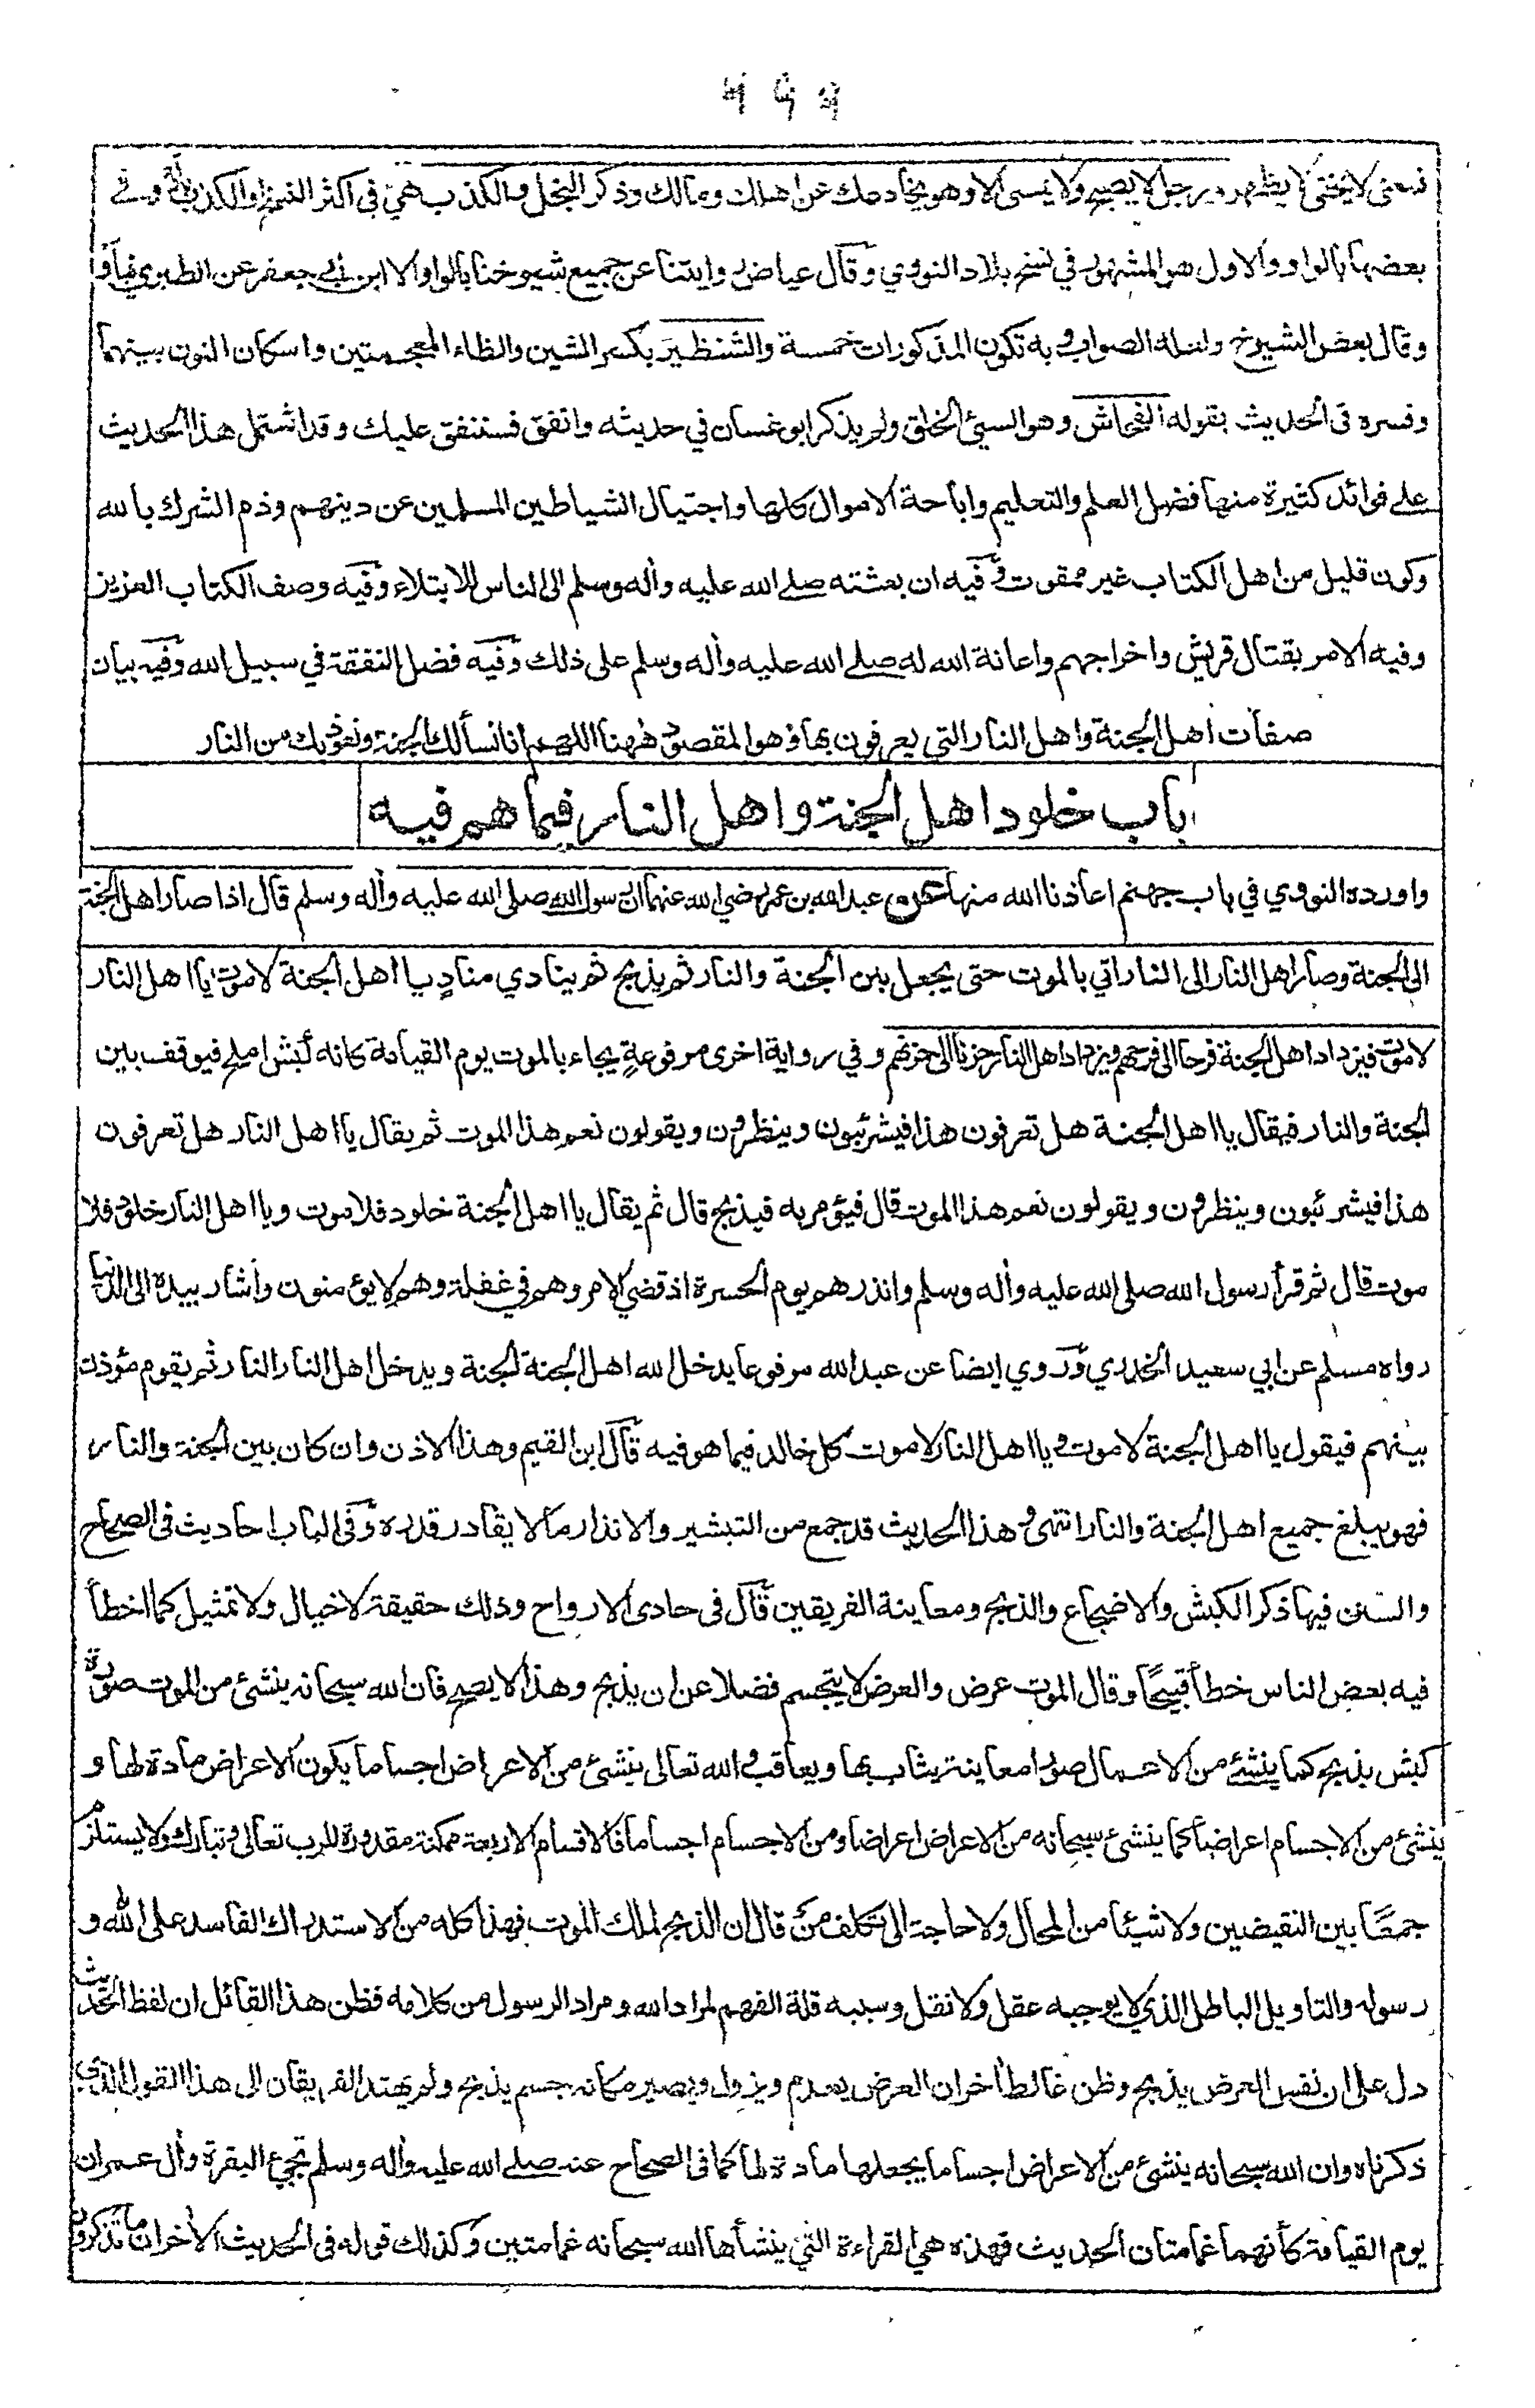 فمعنى لا يخفى لا يظهر ورجل لا يصبح ولا يمسي الا وهو يخادعك عن اهلك ومالك وذكر البخل والكذب هي في اكثر النسخ او الكذب باو وفي
بعضها بالواو والاول هو المشهور في نسخ بلاد النووي وقال عياض روايتنا عن جميع شيوخنا بالواو الا ابن ابي جعفر عن الطبري فباو
وقال بعض الشيوخ ولعله الصواب وبه تكون المذكورات خمسة والشنظير بكسر الشين والظاء المعجمتين واسكان النون بينهما
وفسره في الحديث بقوله الفحاش وهو السيئ الخلق ولم يذكر ابو غسان في حديثه وانفق فسننفق عليك وقد اشتمل هذا الحديث
على فوائد كثيرة منها فضل العلم والتعليم واباحة الاموال كلها واجتيال الشياطين المسلمين عن دينهم وذم الشرك بالله
وكون قليل من اهل الكتاب غير ممقوت وفيه ان بعثته صلے الله عليه وأله وسلم الى الناس للابتلاء وفيه وصف الكتاب العزيز
وفيه الامر بقتال قريش واخراجهم واعانة الله له صلے الله عليه وأله وسلم على ذلك وفيه فضل النفقة في سبيل الله وفيه بيان
صفات اهل الجنة واهل النار التي يعرفون بها وهو المقصود ههنا اللهم انا نسألك الجنة ونعوذ بك من النار
باب خلود اهل الجنة واهل النار فيما هم فيه
واورده النووي في باب جهنم اعاذنا الله منها عن عبد الله بن عمر رضي الله عنهما ان رسول الله صلى الله عليه وأله وسلم قال اذا صار اهل الجنة
الى الجنة وصار اهل النار الى النار اتي بالموت حتى يجعل بين الجنة والنار ثم يذبح ثم ينادي منادٍ يا اهل الجنة لا موت يا اهل النار
لا موت فيزداد اهل الجنة فرحا الى فرحهم ويزداد اهل النار حزنا الى حزنهم وفي رواية اخرى مرفوعةٍ يجاء بالموت يوم القيامة كانه كبش املح فيوقف بين
الجنة والنار فيقال يا اهل الجنة هل تعرفون هذا فيشرئبون وينظرون ويقولون نعم هذا الموت ثم يقال يا اهل النار هل تعرفون
هذا فيشرئبون وينظرون ويقولون نعم هذا الموت قال فيؤمر به فيذبح قال ثم يقال يا اهل الجنة خلود فلا موت ويا اهل النار خلود فلا
موت قال ثم قرأ رسول الله صلى الله عليه وأله وسلم وانذرهم يوم الحسرة اذ قضي الامر وهم في غفلة وهم لا يؤمنون وأشار بيده الى الدنيا
رواه مسلم عن ابي سعيد الخدري وروي ايضا عن عبد الله مرفوعا يدخل الله اهل الجنة الجنة ويدخل اهل النار النار ثم يقوم مؤذن
بينهم فيقول يا اهل الجنة لا موت ويا اهل النار لا موت كل خالد فيما هو فيه قال ابن القيم وهذا الاذن وان كان بين الجنة والنار
فهو يبلغ جميع اهل الجنة والنار انتهى وهذا الحديث قد جمع من التبشير والانذار ما لا يقادر قدره وفي الباب احاديث في الصحاح
والسنن فيها ذكر الكبش والاضجاع والذبح ومعاينة الفريقين قال في حادي الارواح وذلك حقيقة لا خيال ولا تمثيل كما اخطأ
فيه بعض الناس خطأ قبيحًا وقال الموت عرض والعرض لا يتجسم فضلا عن ان يذبح وهذا لا يصح فان الله سبحانه ينشئ من الموت صورة
كبش يذبح كما ينشئ من الاعمال صورا معاينة يثاب بها ويعاقب والله تعالى ينشئ من الاعراض اجساما يكون الاعراض مادة لها و
ينشئ من الاجسام اعراضا كما ينشئ سبحانه من الاعراض اعراضا ومن الاجسام اجساما فالاقسام الاربعة ممكنة مقدورة للرب تعالى وتبارك ولا يستلزم
جمعًا بين النقيضين ولا شيئا من المحال ولا حاجة الى تكلف من قال ان الذبح لملك الموت فهذا كله من الاستدراك الفاسد على الله و
رسوله والتاويل الباطل الذي لا يوجبه عقل ولا نقل وسببه قلة الفهم لمراد الله ومراد الرسول من كلامه فظن هذا القائل ان لفظ الحديث
دل على ان نفس العرض يذبح وظن غالط أخر ان العرض يعدم ويزول ويصير مكانه جسم يذبح ولم يهتد الفريقان الى هذا القول الذي
ذكرناه وان الله سبحانه ينشئ من الاعراض اجساما يجعلها مادة لها كما في الصحاح عنه صلے الله عليه وأله وسلم تجيء البقرة وأل عمران
يوم القيامة كأنهما غمامتان الحديث فهذه هي القراءة التي ينشأها الله سبحانه غمامتين وكذلك قوله في الحديث الأخر ان ما تذكرون